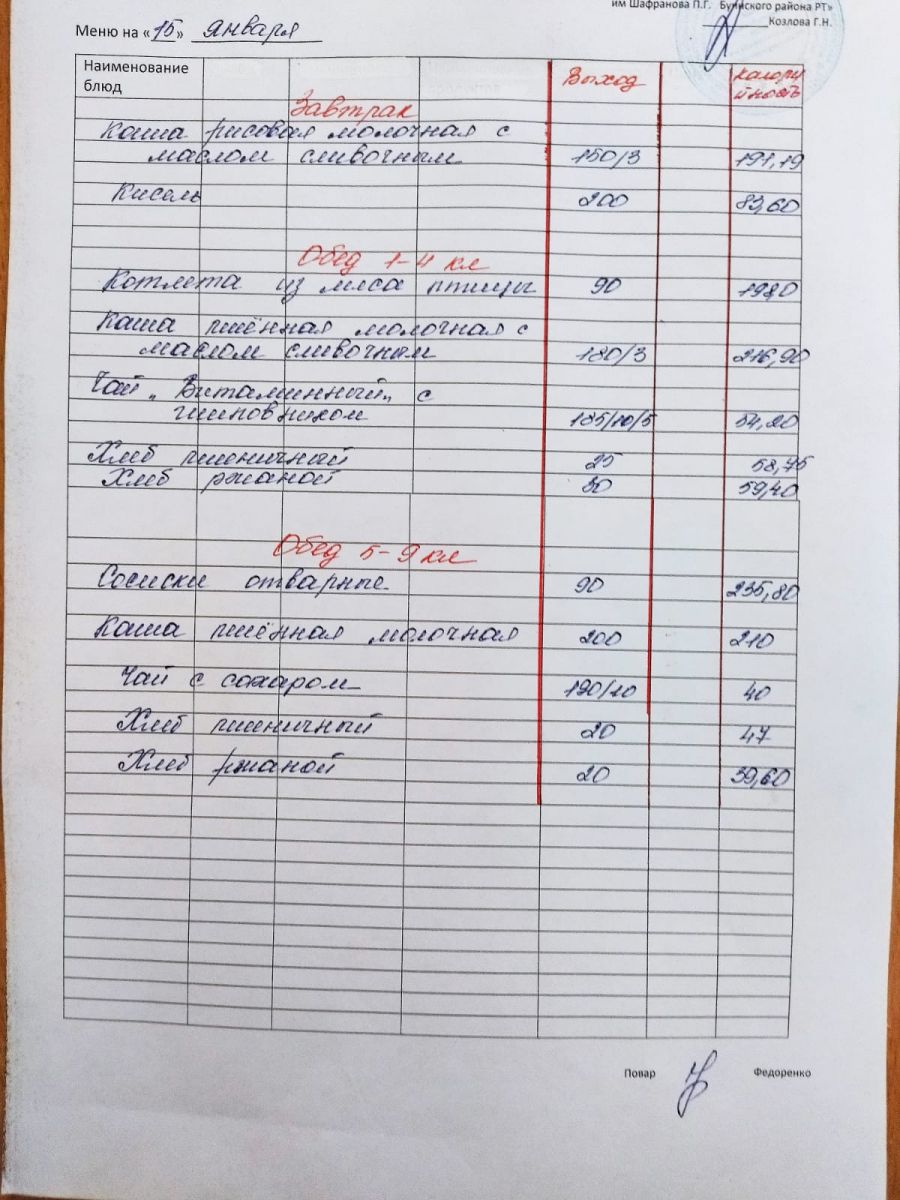 им Шафранова П.Г. Буинского района РТ»
Козлова Г.Н.
Меню на «15» января
Наименование блюд Выход Калори
йность
Завтрак
Каша рисовая молочная с
маслом сливочным 150/3 191,19
Кисель 200 83,60
Обед 1-4 кл
Котлета из мяса птицы 90 1980
Каша пшённая молочная с
маслом сливочным 180/3 216,90
Чай „Витаминный" с
шиповником 185/10/5 54,20
Хлеб пшеничный 25 58,75
Хлеб ржаной 30 59,40
Обед 5-9 кл
Сосиски отварные 90 235,80
Каша пшённая молочная 200 210
Чай с сахаром 190/10 40
Хлеб пшеничный 20 47
Хлеб ржаной 20 39,60
Повар Федоренко